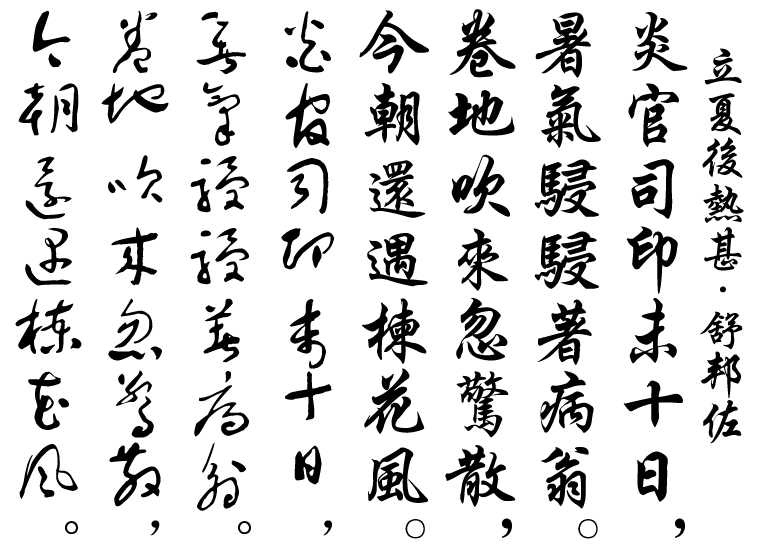 立夏後熱甚·舒邦佐
炎官司印未十日，
暑氣駸駸著病翁。
卷地吹來忽驚散，
今朝還遇楝花風。
炎官司印未十日，
暑氣駸駸著病翁。
卷地吹來忽驚散，
今朝還遇楝花風。